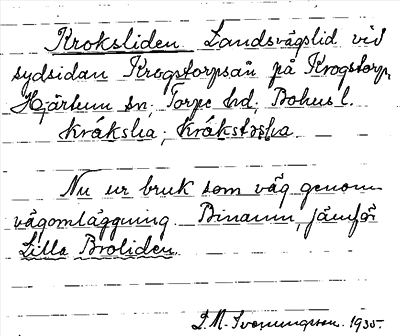 Kroksliden. Landsvägslid vid
sydsidan Krogstorpsån på Krogstorp,
Hjärtum sn, Torpe hd, Bohus l.
kråkslia, kråkstəslia.
Nu ur bruk som väg genom
vägomläggning. Binamn, jämför
Lilla Broliden.
J. M. Svenungsson. 1935.